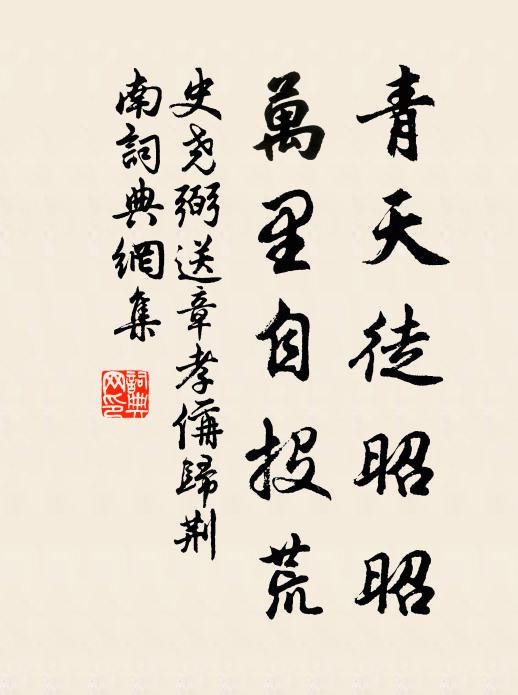 青天徒昭昭
萬里自投荒
史堯弼送章孝偁歸荆
南詞典網集
詞典
网印